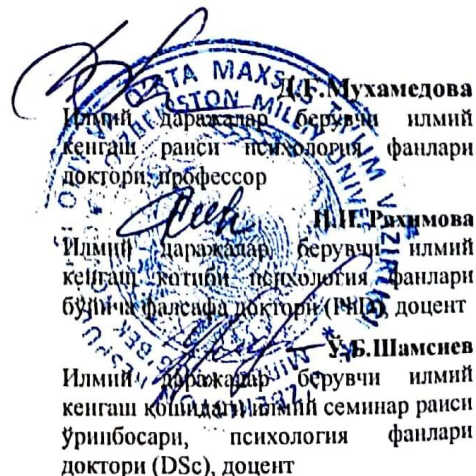 Д.Г.Мухамедова
Илмий даражалар берувчи илмий
кенгаш раиси психология фанлари
доктори, профессор
Рахимова
Илмий даражалар берувчи илмий
кенгаш котиби психология фанлари
бўйича фалсафа доктори (PhD), доцент
Ў.Б.Шамсиев
Илмий даражалар берувчи илмий
кенгаш қошидаги илмий семинар раиси
ўринбосари, психология фанлари
доктори (DSc), доцент
OʻRTA MAXSUS TAʼLIM VAZIRLIGI